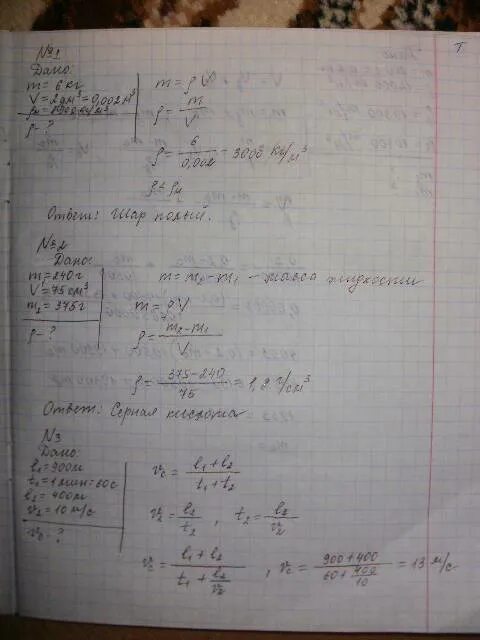 №1
Дано:
m = 6 кг
V = 2дм³ = 0,002м³
ρм = 8900 кг/м³
ρ - ?
m = ρV
ρ = m/V
ρ = 6/0,002 = 3000 кг/м³
ρ ≠ ρм
Ответ: Шар полый.
№2
Дано:
m₁ = 240г
V = 75 см³
m₂ = 375г
ρ - ?
m = m₂ - m₁ - масса жидкости
m = ρV
ρ = (m₂ - m₁)/V
ρ = (375 - 240)/75 = 1,8 г/см³
Ответ: Серная кислота
№3
Дано:
l₁ = 900м
t₁ = 1мин = 60с
l₂ = 400м
v₂ = 10 м/с
vс - ?
vс = (l₁ + l₂)/(t₁ + t₂)
v₂ = l₂/t₂ , t₂ = l₂/v₂
vс = (l₁ + l₂)/(t₁ + l₂/v₂) , vс = (900 + 400)/(60 + 400/10) = 13 м/с